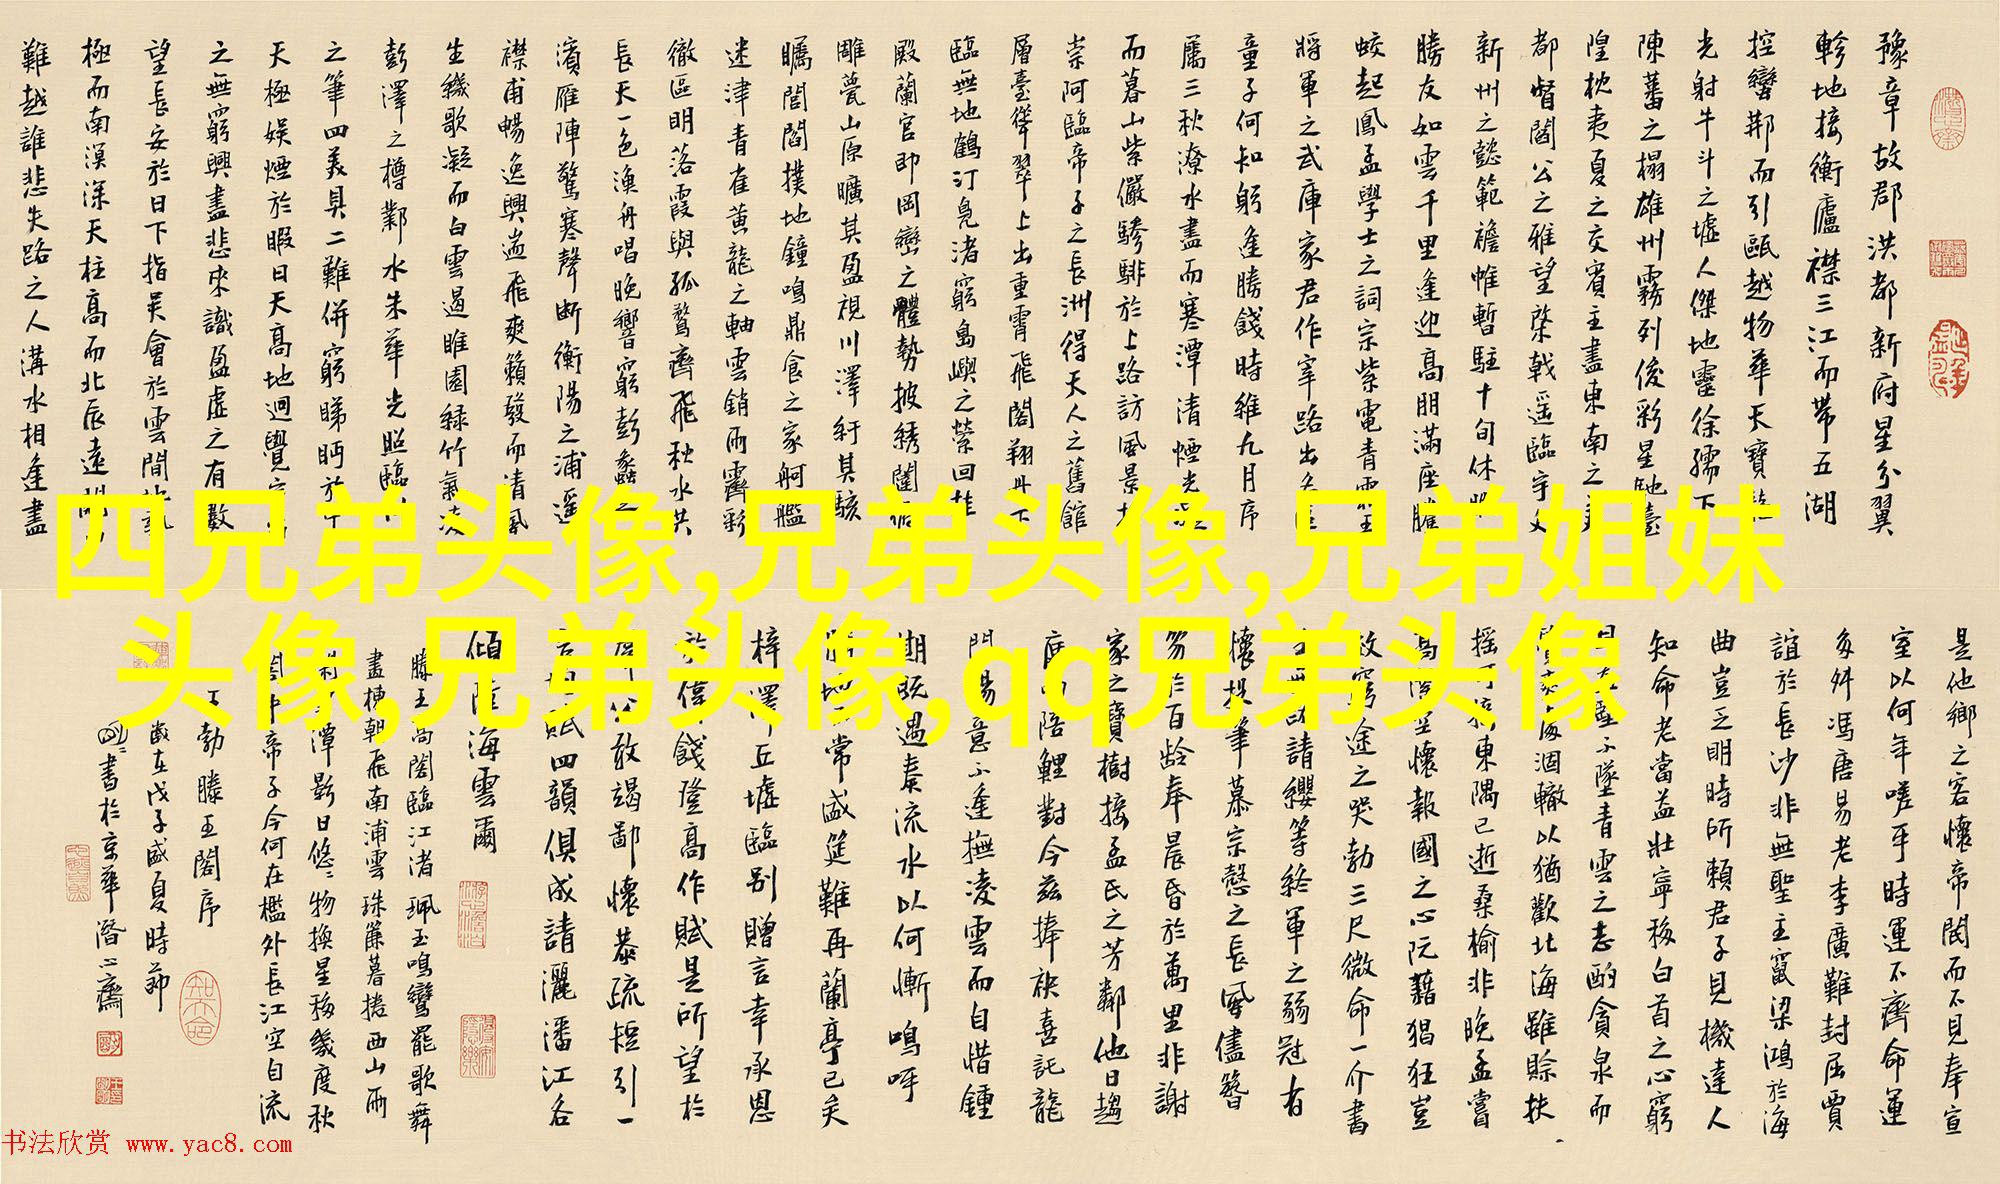 豫章故郡洪都新府星分翼
軫地接衡廬襟三江而帶五湖
控蠻荊而引甌越物華天寶
光射牛斗之墟人傑地靈徐孺下
陳蕃之榻雄州霧列俊彩星馳臺
隍枕夷夏之交賓主盡東南之美
都督閻公之雅望棨戟遥臨宇文
新州之懿範襜帷暫駐十旬休暇
勝友如雲千里逢迎高朋滿座騰
蛟起鳳孟學士之詞宗紫電青霜王
將軍之武庫家君作宰路出名區
童子何知躬逢勝餞時維九月序
屬三秋潦水盡而寒潭清煙光凝
而暮山紫儼驂騑於上路訪風景於
崇阿臨帝子之長洲得天人之舊館
層臺聳翠上出重霄飛閣翔丹下
臨無地鶴汀鳧渚窮島嶼之縈回桂
殿蘭宮即岡巒之體勢披綉闥俯
雕甍山原曠其盈視川澤紆其駭
矚閭閻撲地鐘鳴鼎食之家舸艦
迷津青雀黄龍之軸雲銷雨霽彩
徹區明落霞與孤鶩齊飛秋水共
長天一色漁舟唱晚響窮彭蠡之
濱雁陣驚寒聲斷衡陽之浦遥
襟甫暢逸興遄飛爽籟發而清風
生纖歌凝而白雲遏睢園緑竹氣凌
彭澤之樽鄴水朱華光照臨
之筆四美具二難併窮睇眄於中
天極娱煙於暇日天高地迥覺
之無窮興盡悲來識盈虚之有數
望長安於日下指吴會於雲間
極而南溟深天柱高而北辰遠關
難越誰悲失路之人溝水相逢盡
四兄弟头像,兄弟头像,兄弟姐妹
头像,兄弟头像,qq兄弟头像
是他鄉之客懷帝閽而不見奉宣
室以何年嗟乎時運不齊命運
多舛馮唐易老李廣難封屈賈
誼於長沙非無聖主竄梁鴻於海
曲豈乏明時所賴君子見機達人
知命老當益壯寧移白首之心窮
且益堅不墜青雲之志酌貪泉而
涸轍以猶歡北海雖賒扶
摇可接東隅已逝桑榆非晚孟嘗
高潔空懷報國之心阮藉猖狂豈
效窮途之哭勃三尺微命一介書
請纓等終軍之弱冠有
懷投筆慕宗慤之長風儘簪
笏於百齡奉晨昏於萬里非謝
家之寶樹接孟氏之芳鄰他日趨
庭叨陪鯉對今兹捧袂喜託龍
門楊意不逢撫凌雲而自惜鍾
期既遇奏流水以何慚鳴呼
地常盛筵難再蘭亭已矣
梓澤丘墟臨别贈言幸承恩
於偉餞登高作賦是所望於
敢竭鄙懷恭疏短引一
賦四韻俱成請灑潘江各
傾陸海雲爾
滕王高閣臨江渚珮玉鳴鸞罷歌舞
畫棟朝飛南浦雲珠簾暮捲西山雨
潭影日悠悠物換星移幾度秋
閣中帝子今何在檻外長江空自流
王勃滕王閣序
歲在戊子盛夏時節
書於京華潛心齋
书法欣赏 www.yac8.com